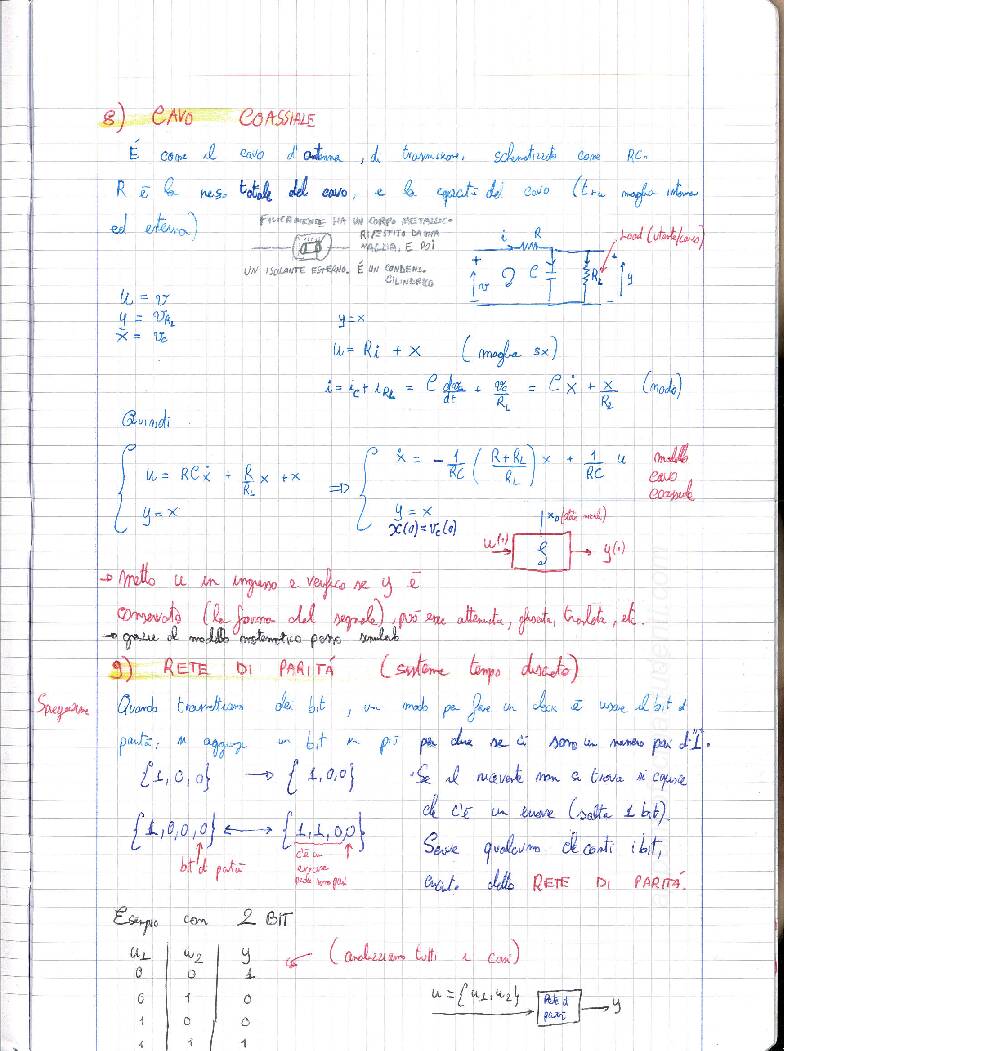 8) CAVO COASSIALE
È come il cavo d'antenna, di trasmissione, schematizzato come RC.
R è la res. totale del cavo, e la capacità del cavo (tra maglia interna
ed esterna)
FISICAMENTE HA UN CORPO METALLICO
RIVESTITO DA UNA
MAGLIA, E POI
UN ISOLANTE ESTERNO. È UN CONDENS.
CILINDRICO
i R
Load (utente/carico)
+ v C R_L + y
u = v
y = v_{R_L}
x = v_c
y = x
u = Ri + x (maglia sx)
i = i_C + i_{RL} = C dv_c/dt + v_c/R_L = C ẋ + x/R_L (nodo)
Quindi
{ u = RCẋ + R/R_L x + x
y = x
⇒ { ẋ = - 1/RC ( R+R_L / R_L ) x + 1/RC u
y = x
x(0) = v_c(0)
modello
cavo
coassiale
x_0 (stato iniziale)
u(·) → S → y(·)
→ Metto u in ingresso e verifico se y è
conservato (la forma del segnale), può essere attenuata, sfasata, traslata, etc.
→ grazie al modello matematico posso simularlo
9) RETE DI PARITÁ (sistema tempo discreto)
Spiegazione
Quando trasmettiamo dei bit, un modo per fare un check è usare il bit di
parità; si aggiunge un bit in più per dire se ci sono un numero pari di "1".
{1,0,0} → {1,0,0}
{1,0,0,0} ↔ {1,1,0,0}
bit di parità
c'è un
errore
perché sono pari
· Se il ricevente non si trova si capisce
che c'è un errore (salta 1 bit).
Serve qualcuno che conti i bit,
circuito detto RETE DI PARITÁ.
Esempio con 2 BIT
u1 u2 y
0 0 1
0 1 0
1 0 0
1 1 1
(analizziamo tutti i casi)
u = {u1, u2} → Rete di parità → y